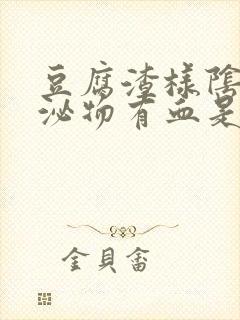 豆腐渣樣陰
泌物有血是
金貝畲